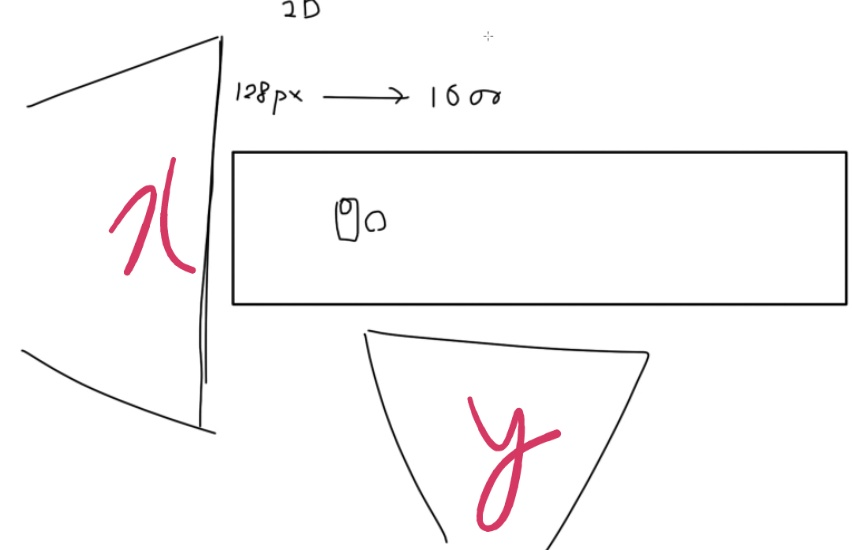 2D
128px → 1600
x
y